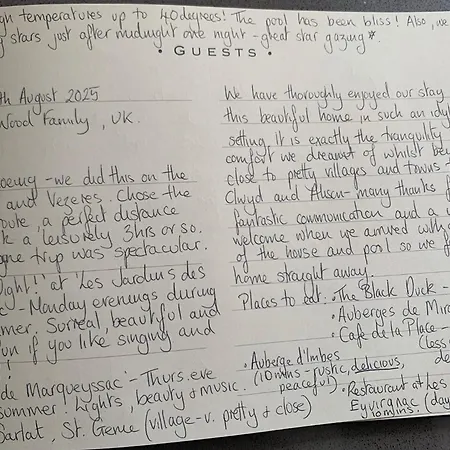 gn temperatures up to 40degrees! The pool has been bliss! Also, we
stars just after midnight one night - great star gazing*.
• GUESTS •
th August 2025
Wood Family, UK.
oeing - we did this on the
and Vezeres. Chose the
oute, a perfect distance
k a leisurely 3hrs or so.
trip was spectacular.
ight!' at 'Les Jardins des
c' - Monday evenings during
mer. Surreal, beautiful and
un if you like singing and
!
de Marqueyssac' - Thurs. eve
summer. Lights, beauty & music.
Sarlat, St. Genie (village - v. pretty & close)
We have thoroughly enjoyed our stay
this beautiful home, in such an idyl
setting. It is exactly the tranquility
comfort we dreamt of whilst bei
close to pretty villages and towns
Clwyd and Alison - many thanks f
fantastic communication and a
welcome when we arrived with
of the house and pool so we f
home straight away.
Places to eat: • The Black Duck -
• Auberges de Mir
• Cafe de la Place -
(less
• Auberge d'Imbes
(10mins - rustic, delicious, de
peaceful).
• Restaurant at Les
Eyvignac (day
10mins.